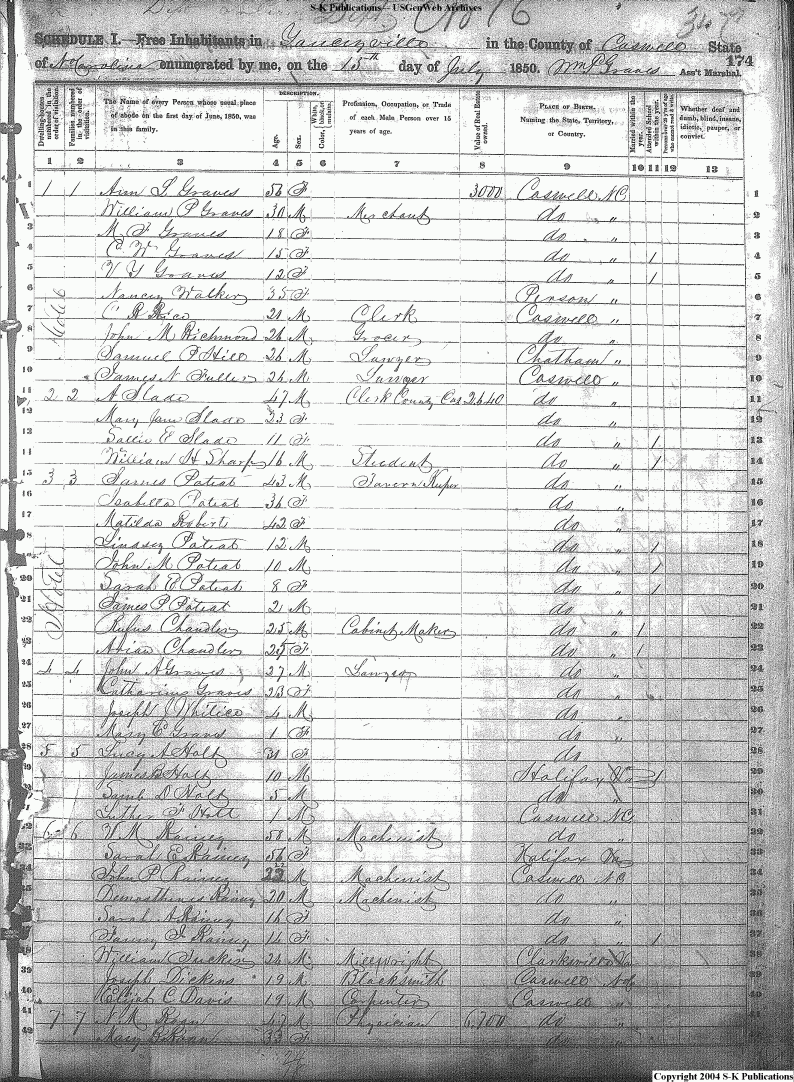 S-K Publications - USGenWeb Archives
No 16
347
SCHEDULE I. — Free Inhabitants in Yanceyville in the County of Caswell State
of N Carolina enumerated by me, on the 15th day of July 1850. Wm P Graves Ass't Marshal. 174
Dwelling-houses numbered in the order of visitation.
Families numbered in the order of visitation.
The Name of every Person whose usual place of abode on the first day of June, 1850, was in this family.
DESCRIPTION.
Age.
Sex.
Color, White, black, or mulatto.
Profession, Occupation, or Trade of each Male Person over 15 years of age.
Value of Real Estate owned.
PLACE OF BIRTH. Naming the State, Territory, or Country.
Married within the year.
Attended School within the year.
Persons over 20 y'rs of age who cannot read & write.
Whether deaf and dumb, blind, insane, idiotic, pauper, or convict.
1 2 3 4 5 6 7 8 9 10 11 12 13
1 1 1 Ann S Graves 56 F 3000 Caswell NC 1
2 William P Graves 30 M Merchant do " 2
3 M F Graves 18 F do " 3
4 E W Graves 15 F do " 1 4
5 V Y Graves 12 F do " 1 5
6 Nancy Walker 35 F Person " 6
7 C R Rice 21 M Clerk Caswell " 7
8 John M Richmond 26 M Grocer do " 8
9 Samuel P Hill 26 M Lawyer Chatham " 9
10 James N Fuller 24 M Lawyer Caswell " 10
Hotel
11 2 2 A Slade 47 M Clerk County 2640 do " 11
12 Mary Jane Slade 23 F do " 12
13 Sallie E Slade 11 F do " 1 13
14 William H Sharp 16 M Student do " 1 14
15 3 3 James Poteat 43 M Tavern Keeper do " 15
16 Isabella Poteat 36 F do " 16
17 Matilda Roberts 42 F do " 17
18 Lindsey Poteat 12 M do " 1 18
19 John M Poteat 10 M do " 1 19
20 Sarah E Poteat 8 F do " 1 20
21 James P Poteat 2 M do " 21
22 Rufus Chandler 25 M Cabinet Maker do " 1 22
23 Chandler 25 F do " 1 23
Hotel
24 4 4 John A Graves 27 M Lawyer do " 24
25 Katharine Graves 23 F do " 25
26 Joseph 4 M do " 26
27 Mary E Graves 1 F do " 27
28 5 5 Lucy A Holt 31 F do 28
29 James B Holt 10 M Halifax Va 1 29
30 Saml D Holt 5 M do
31 Luther F Holt 1 M Caswell NC 31
32 6 6 Rainey 58 M Machinist do " 32
33 Sarah E Rainey 56 F Halifax Va 33
34 John P Rainey M Machinist Caswell NC 34
35 Demosthenes Rainey 20 M Machinist do " 35
36 Sarah A Rainey 16 F do "
37 Fanny I Rainey 14 F do " 1 37
38 William 24 M Millwright Clarksville Va 38
39 Joseph Dickens 19 M Blacksmith Caswell NC 39
40 Elijah C Davis 19 M Carpenter Caswell " 40
41 7 7 N M Roan 47 M Physician 6,700 do " 41
42 Mary Roan 33 F do
Copyright 2004 S-K Publications